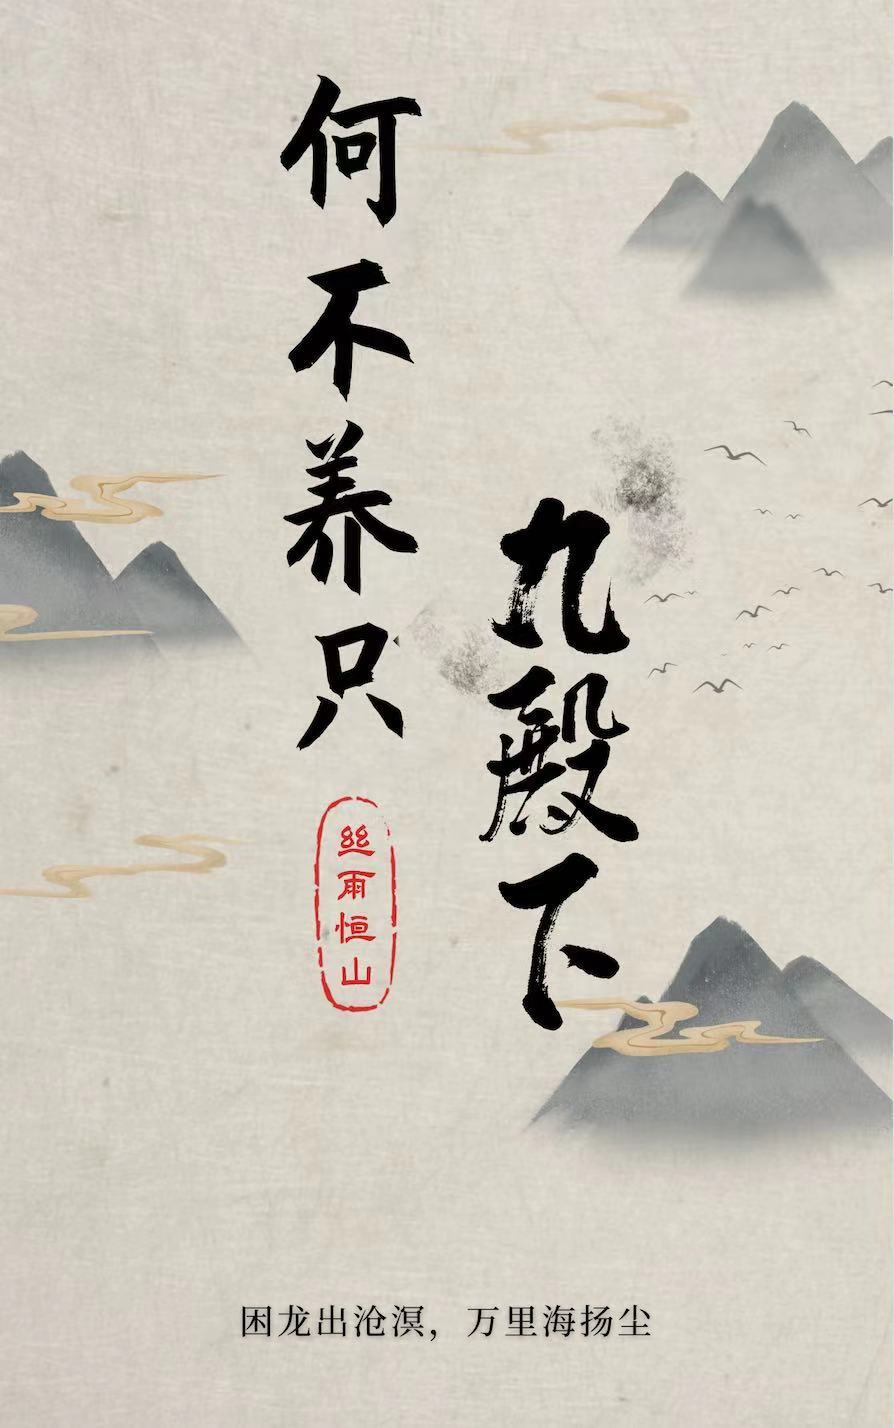 何不养只
九殿下
丝雨恒山
困龙出沧溟，万里海扬尘